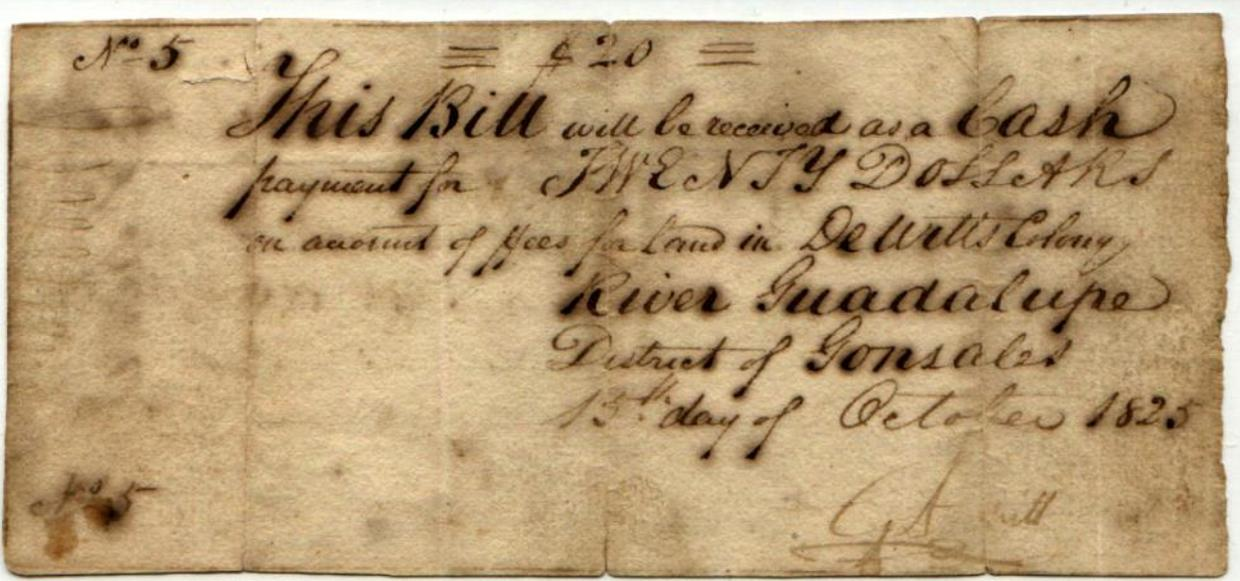 No. 5 = $20 =
This Bill will be received as a Cash
payment for TWENTY DOLLARS
on account of ffees for Land in DeWitt's Colony
River Guadalupe
District of Gonsales
15th day of October 1825
No. 5